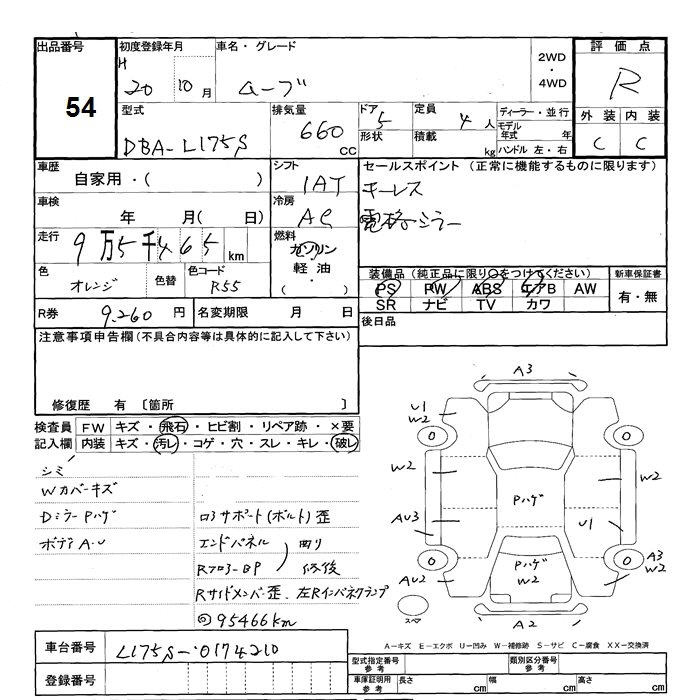 出品番号
54
初度登録年月
H 20 10月
車名・グレード
ムーブ
2WD
・
4WD
評価点
R
型式
DBA-L175S
排気量
660 cc
ドア 5
形状
定員 4人
積載 kg
ディーラー・並行
モデル年式 年
ハンドル 左・右
外装 内装
C C
車歴
自家用・( )
シフト
IAT
セールスポイント (正常に機能するものに限ります)
キーレス
電格ミラー
車検
年 月( 日)
冷房
AC
走行
9万5千465 km
燃料
ガソリン
軽油
( ・ )
色
オレンジ
色替
色コード
R55
装備品(純正品に限り○をつけてください)
PS PW ABS エアB AW
SR ナビ TV カワ
新車保証書
有・無
R券 9,260 円
名変期限 月 日
後日品
注意事項申告欄(不具合内容等は具体的に記入して下さい)
修復歴 有 〔箇所 〕
検査員記入欄
FW キズ・飛石・ヒビ割・リペア跡・×要
内装 キズ・汚レ・コゲ・穴・スレ・キレ・破レ
シミ
Wカバーキズ
Dミラー Pハゲ
ボディ A・U
コアサポート(ボルト)歪
エンドパネル
Rフロアー BP
凹リ
修後
Rサイドメンバー歪、左Rインパネクランプ
◎95466km
A3
U1
W2
W2
AU3
AU2
Pハゲ
Pハゲ
W2
W2
U1
A3
W2
A2
スペア
A-キズ E-エクボ U-凹み W-補修跡 S-サビ C-腐食 XX-交換済
車台番号
L175S-0174210
登録番号
型式指定番号
参考
類別区分番号
参考
車庫証明用
参考
長さ cm
幅 cm
高さ cm